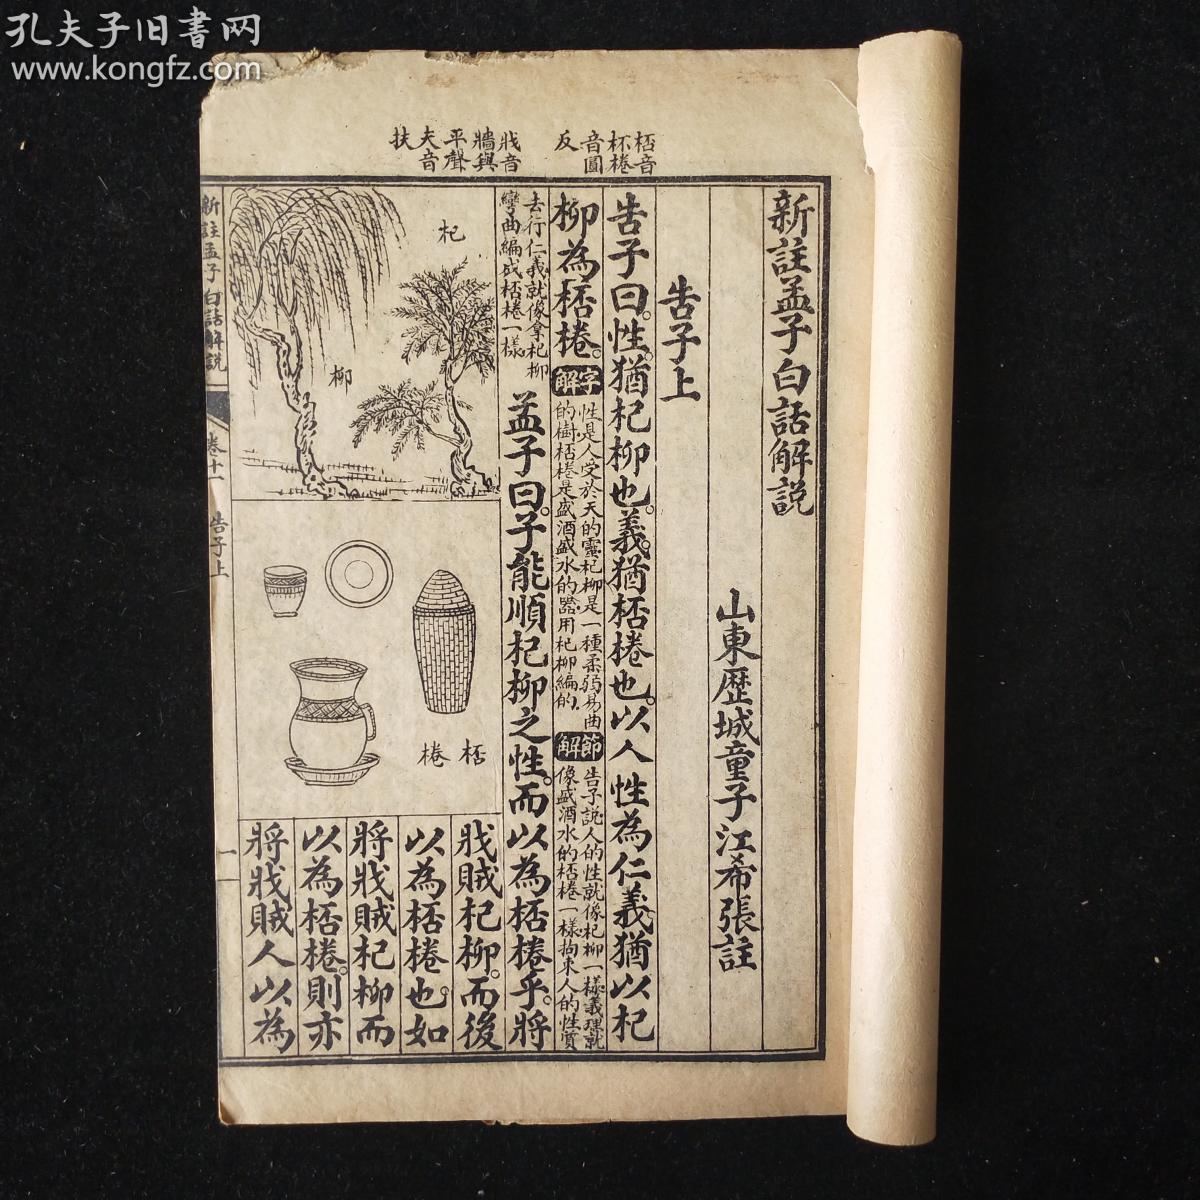 孔夫子旧书网
www.kongfz.com
桮音
杯棬
音圓
反
戕音
牆與
平聲
夫音
扶
新註孟子白話解説
山東歷城童子江希張註
告子上
告子曰。性。猶杞柳也。義。猶桮棬也。以人性為仁義。猶以杞
柳為桮棬。
字解
性是人受於天的靈杞柳是一種柔弱易曲
的樹桮棬是盛酒盛水的器用杞柳編的
節解
告子説人的性就像杞柳一樣義理就
像盛酒水的桮棬一樣拘束人的性質
去行仁義就像拿杞柳
彎曲編成桮棬一樣
孟子曰。子能順杞柳之性。而以為桮棬乎。將
戕賊杞柳。而後
以為桮棬也。如
將戕賊杞柳而
以為桮棬。則亦
將戕賊人以為
杞
柳
桮棬
新註孟子白話解説
卷十一
告子上
一